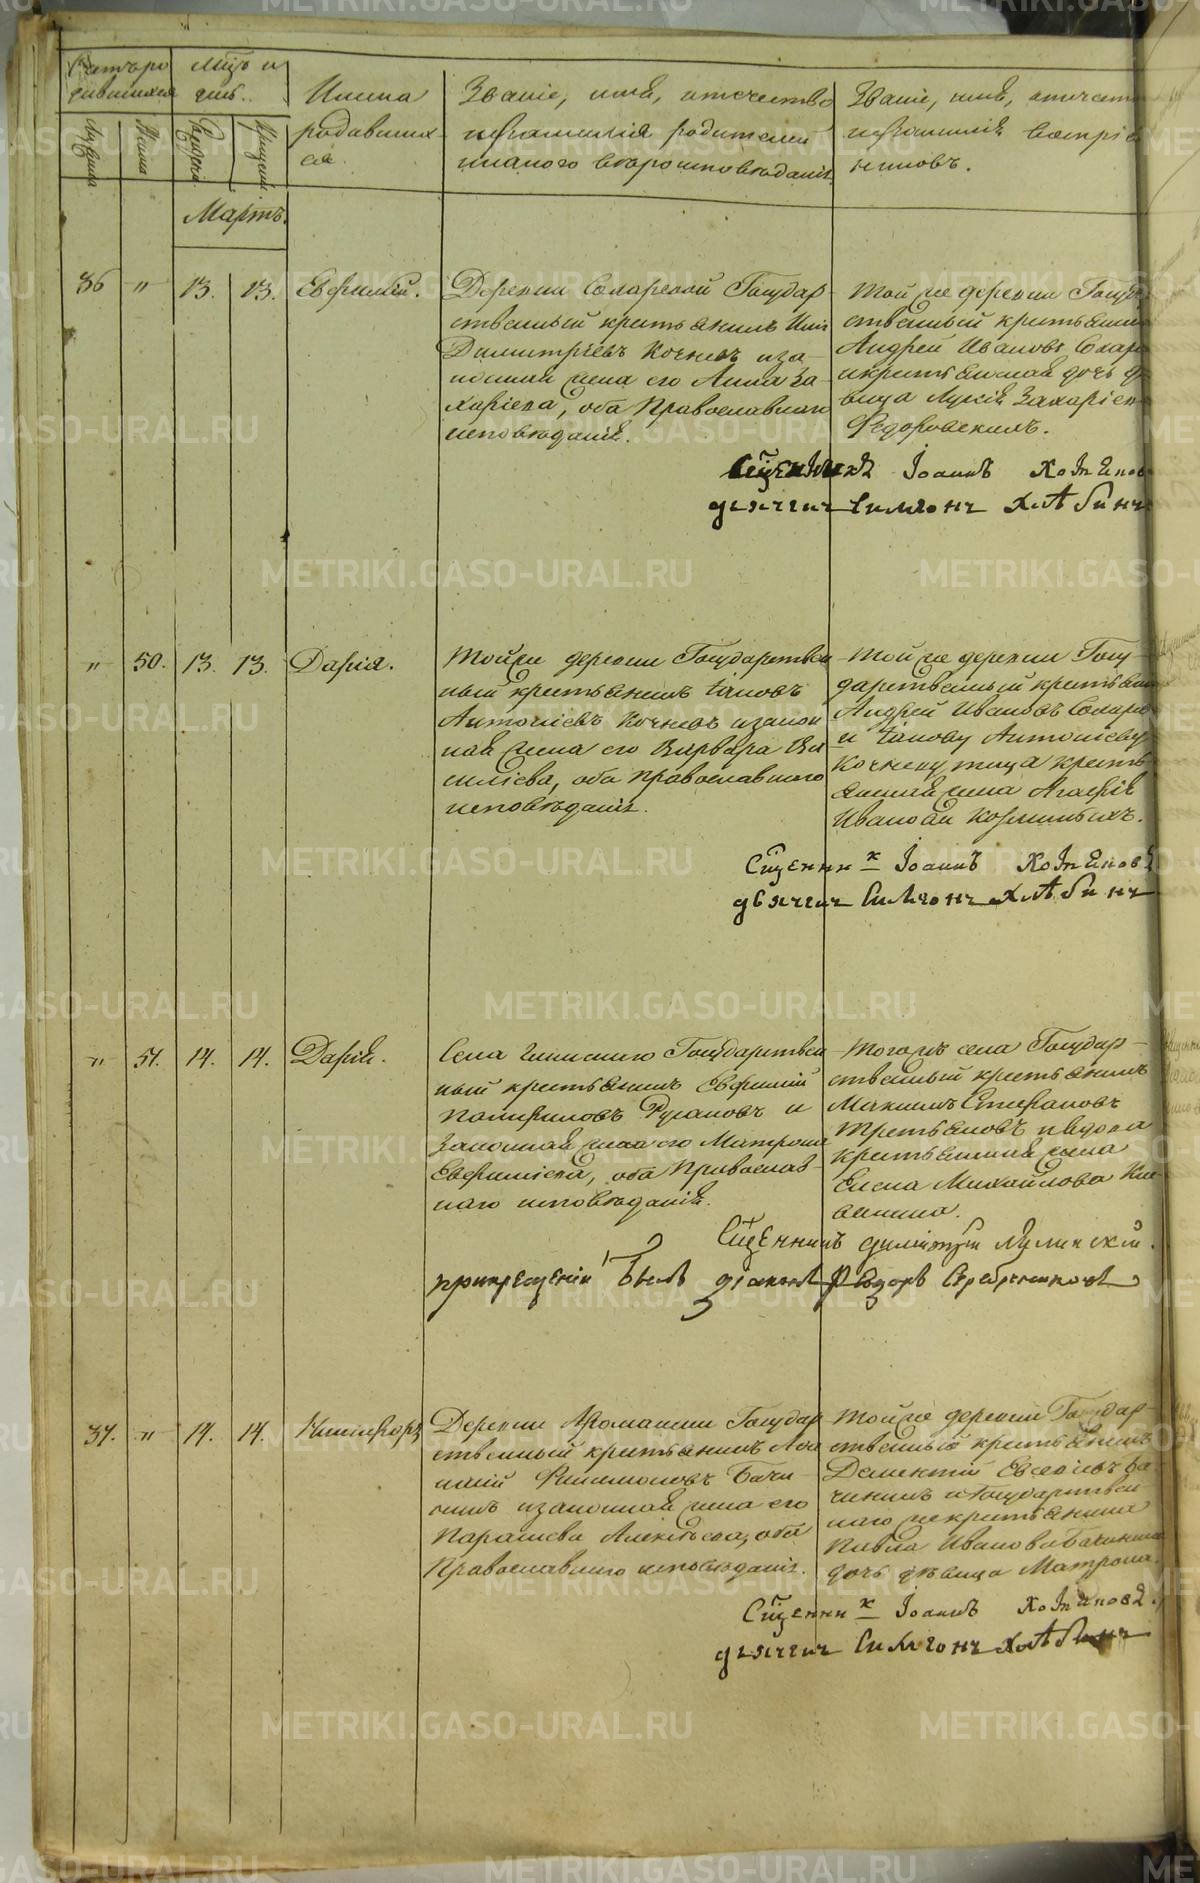 Счетъ ро
дившихся
Мѣсяцъ и
день.
Мужеска
Женска
Рожденія
Крещенія
Имена
родивших
ся.
Званіе, имя, отечество
и фамилія родителей
и какого вѣроисповѣданія.
Званіе, имя, отчеств
и фамилія воспріе
никовъ.
Мартъ.
36 " 13. 13. Евфимій.
Деревни Государ
ственный крестьянинъ
Димитріевъ Кочневъ и за
конная жена его Анна За
харіева, оба Православнаго
исповѣданія.
Той же деревни Госуд
ственный крестьянин
Андрей Ивановъ
и крестьянская дочь д
вица Захаріев
Федоровскихъ.
Сщенникъ Іоаннъ
дьячекъ Симеонъ Хлѣбинъ
" 50. 13. 13. Дарія.
Той же деревни Государствен
ный крестьянинъ Іаковъ
Антоніевъ Кочневъ и закон
ная жена его Варвара Ва
силіева, оба православнаго
исповѣданія.
Той же деревни Госу
дарственный крестьян
Андрей Ивановъ
и Іакову Антоніеву
Кочневу крестъ
янская жена Агафія
Иванова
Сщенникъ Іоаннъ
дьячекъ Симеонъ Хлѣбинъ
" 51. 14. 14. Дарія.
Села Государствен
ный крестьянинъ Евфимій
Памфиловъ Русановъ и
Законная жена его Матрона
Евфиміева, оба Православ
наго исповѣданія.
Тогожъ села Государ
ственный крестьянинъ
Максимъ Стефановъ
Третьяковъ и вдова
крестьянская жена
Елена Михайлова
Сщенникъ Димитрій
при крещеніи былъ діаконъ Федоръ Серебренниковъ
37. " 14. 14. Никифоръ
Деревни Государ
ственный крестьянинъ
Филимоновъ Бачи
нинъ и законная жена его
Параскева Алексѣева, оба
Православнаго исповѣданія.
Той же деревни Государ
ственный крестьянинъ
Дементій Евсевіевъ Ба
чининъ и Государствен
наго же крестьянина
Павла Иванова Бачинина
дочь дѣвица Матрона.
Сщенникъ Іоаннъ
дьячекъ Симеонъ Хлѣбинъ
METRIKI.GASO-URAL.RU